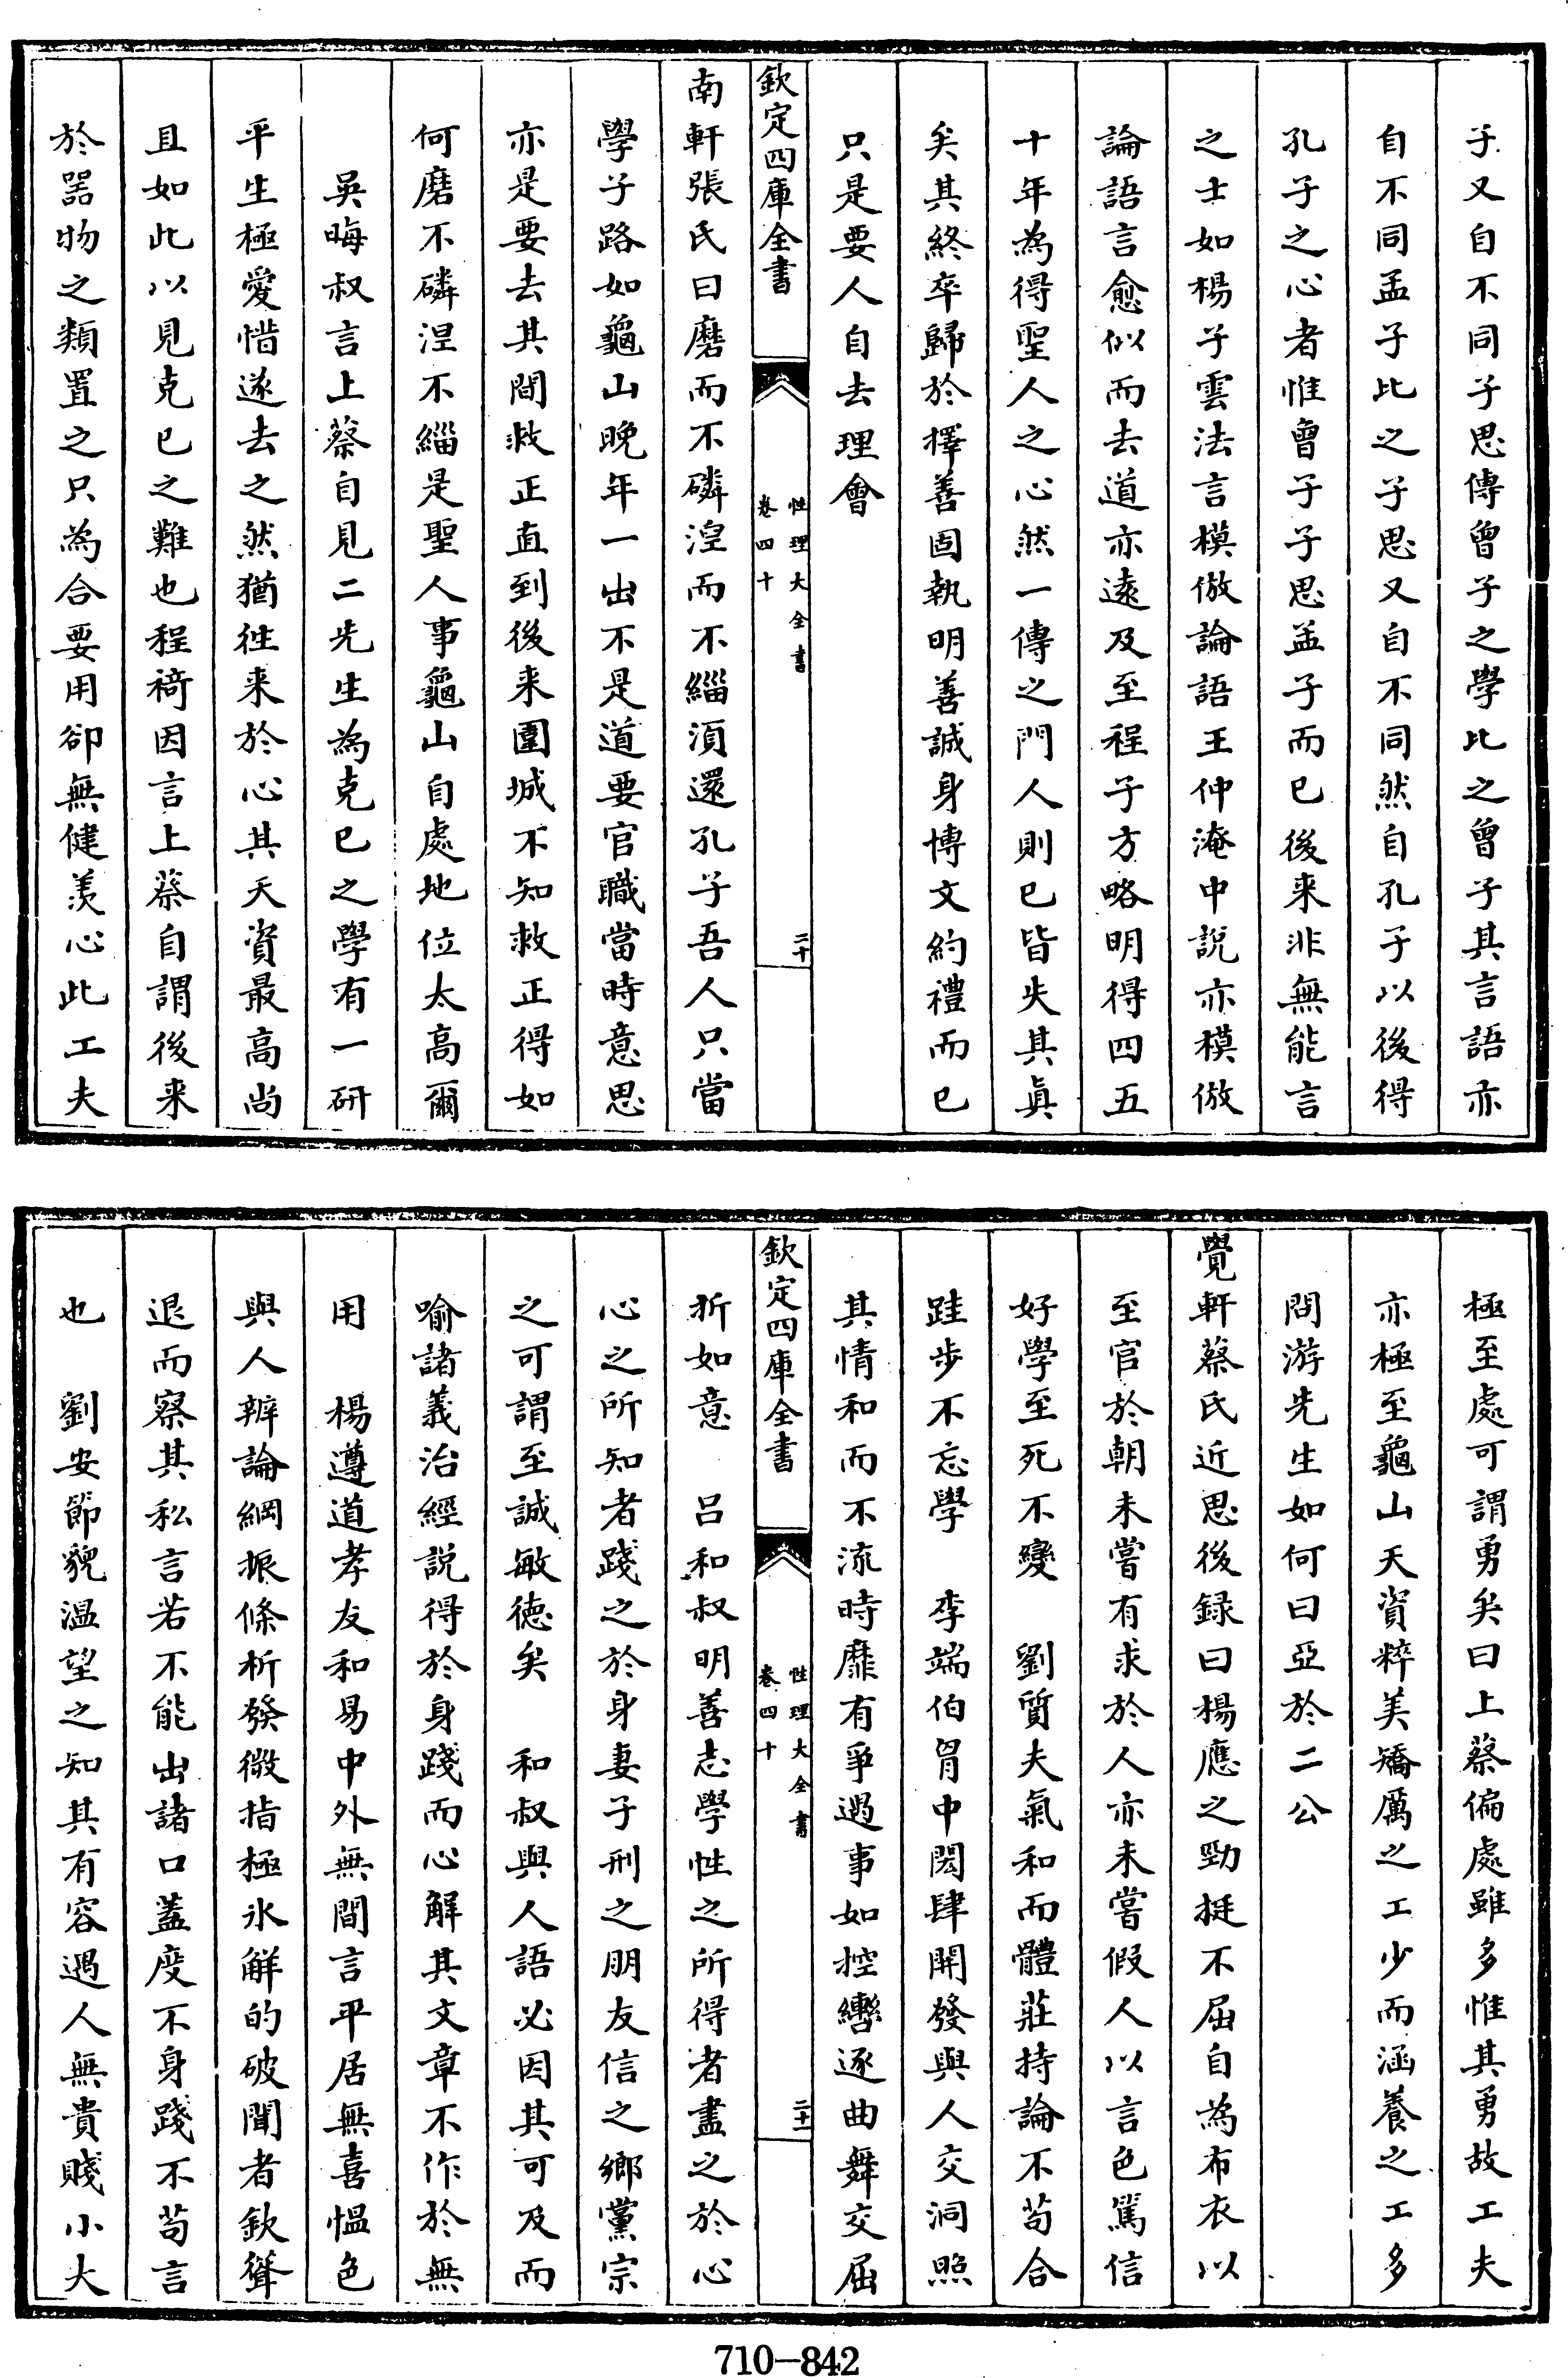 子又自不同子思傳曾子之學比之曾子其言語亦
自不同孟子比之子思又自不同然自孔子以後得
孔子之心者惟曾子子思孟子而已後来非無能言
之士如楊子雲法言模倣論語王仲淹中説亦模倣
論語言愈似而去道亦逺及至程子方略明得四五
十年為得聖人之心然一傳之門人則已皆失其真
矣其終卒歸於擇善固執明善誠身博文約禮而已
只是要人自去理會
欽定四庫全書
性理大全書
卷四十
二十
南軒張氏曰磨而不磷湼而不緇湏還孔子吾人只當
學子路如龜山晚年一出不是道要官職當時意思
亦是要去其間救正直到後来圍城不知救正得如
何磨不磷涅不緇是聖人事龜山自處地位太高爾
吳晦叔言上蔡自見二先生為克已之學有一研
平生極愛惜遂去之然猶徃来於心其天資最高尚
且如此以見克已之難也程掎因言上蔡自謂後来
於器物之類置之只為合要用卻無健羡心此工夫
極至處可謂勇矣曰上蔡偏處雖多惟其勇故工夫
亦極至龜山天資粹美矯厲之工少而涵養之工多
問游先生如何曰亞於二公
覺軒蔡氏近思後録曰楊應之勁挺不屈自為布衣以
至官於朝未嘗有求於人亦未嘗假人以言色篤信
好學至死不變　劉質夫氣和而體莊持論不苟合
跬步不忘學　李端伯胷中閎肆開發與人交洞照
其情和而不流時靡有爭遇事如控轡逐曲舞交屈
欽定四庫全書
性理大全書
卷四十
二十一
折如意　呂和叔明善志學性之所得者盡之於心
心之所知者踐之於身妻子刑之朋友信之鄉黨宗
之可謂至誠敏徳矣　和叔與人語必因其可及而
喻諸義治經説得於身踐而心解其文章不作於無
用　楊遵道孝友和易中外無間言平居無喜慍色
與人辨論綱振條析發微指極氷觧的破聞者欽聳
退而察其私言若不能出諸口蓋度不身踐不苟言
也　劉安節貌温望之知其有容遇人無貴賤小大
710-842